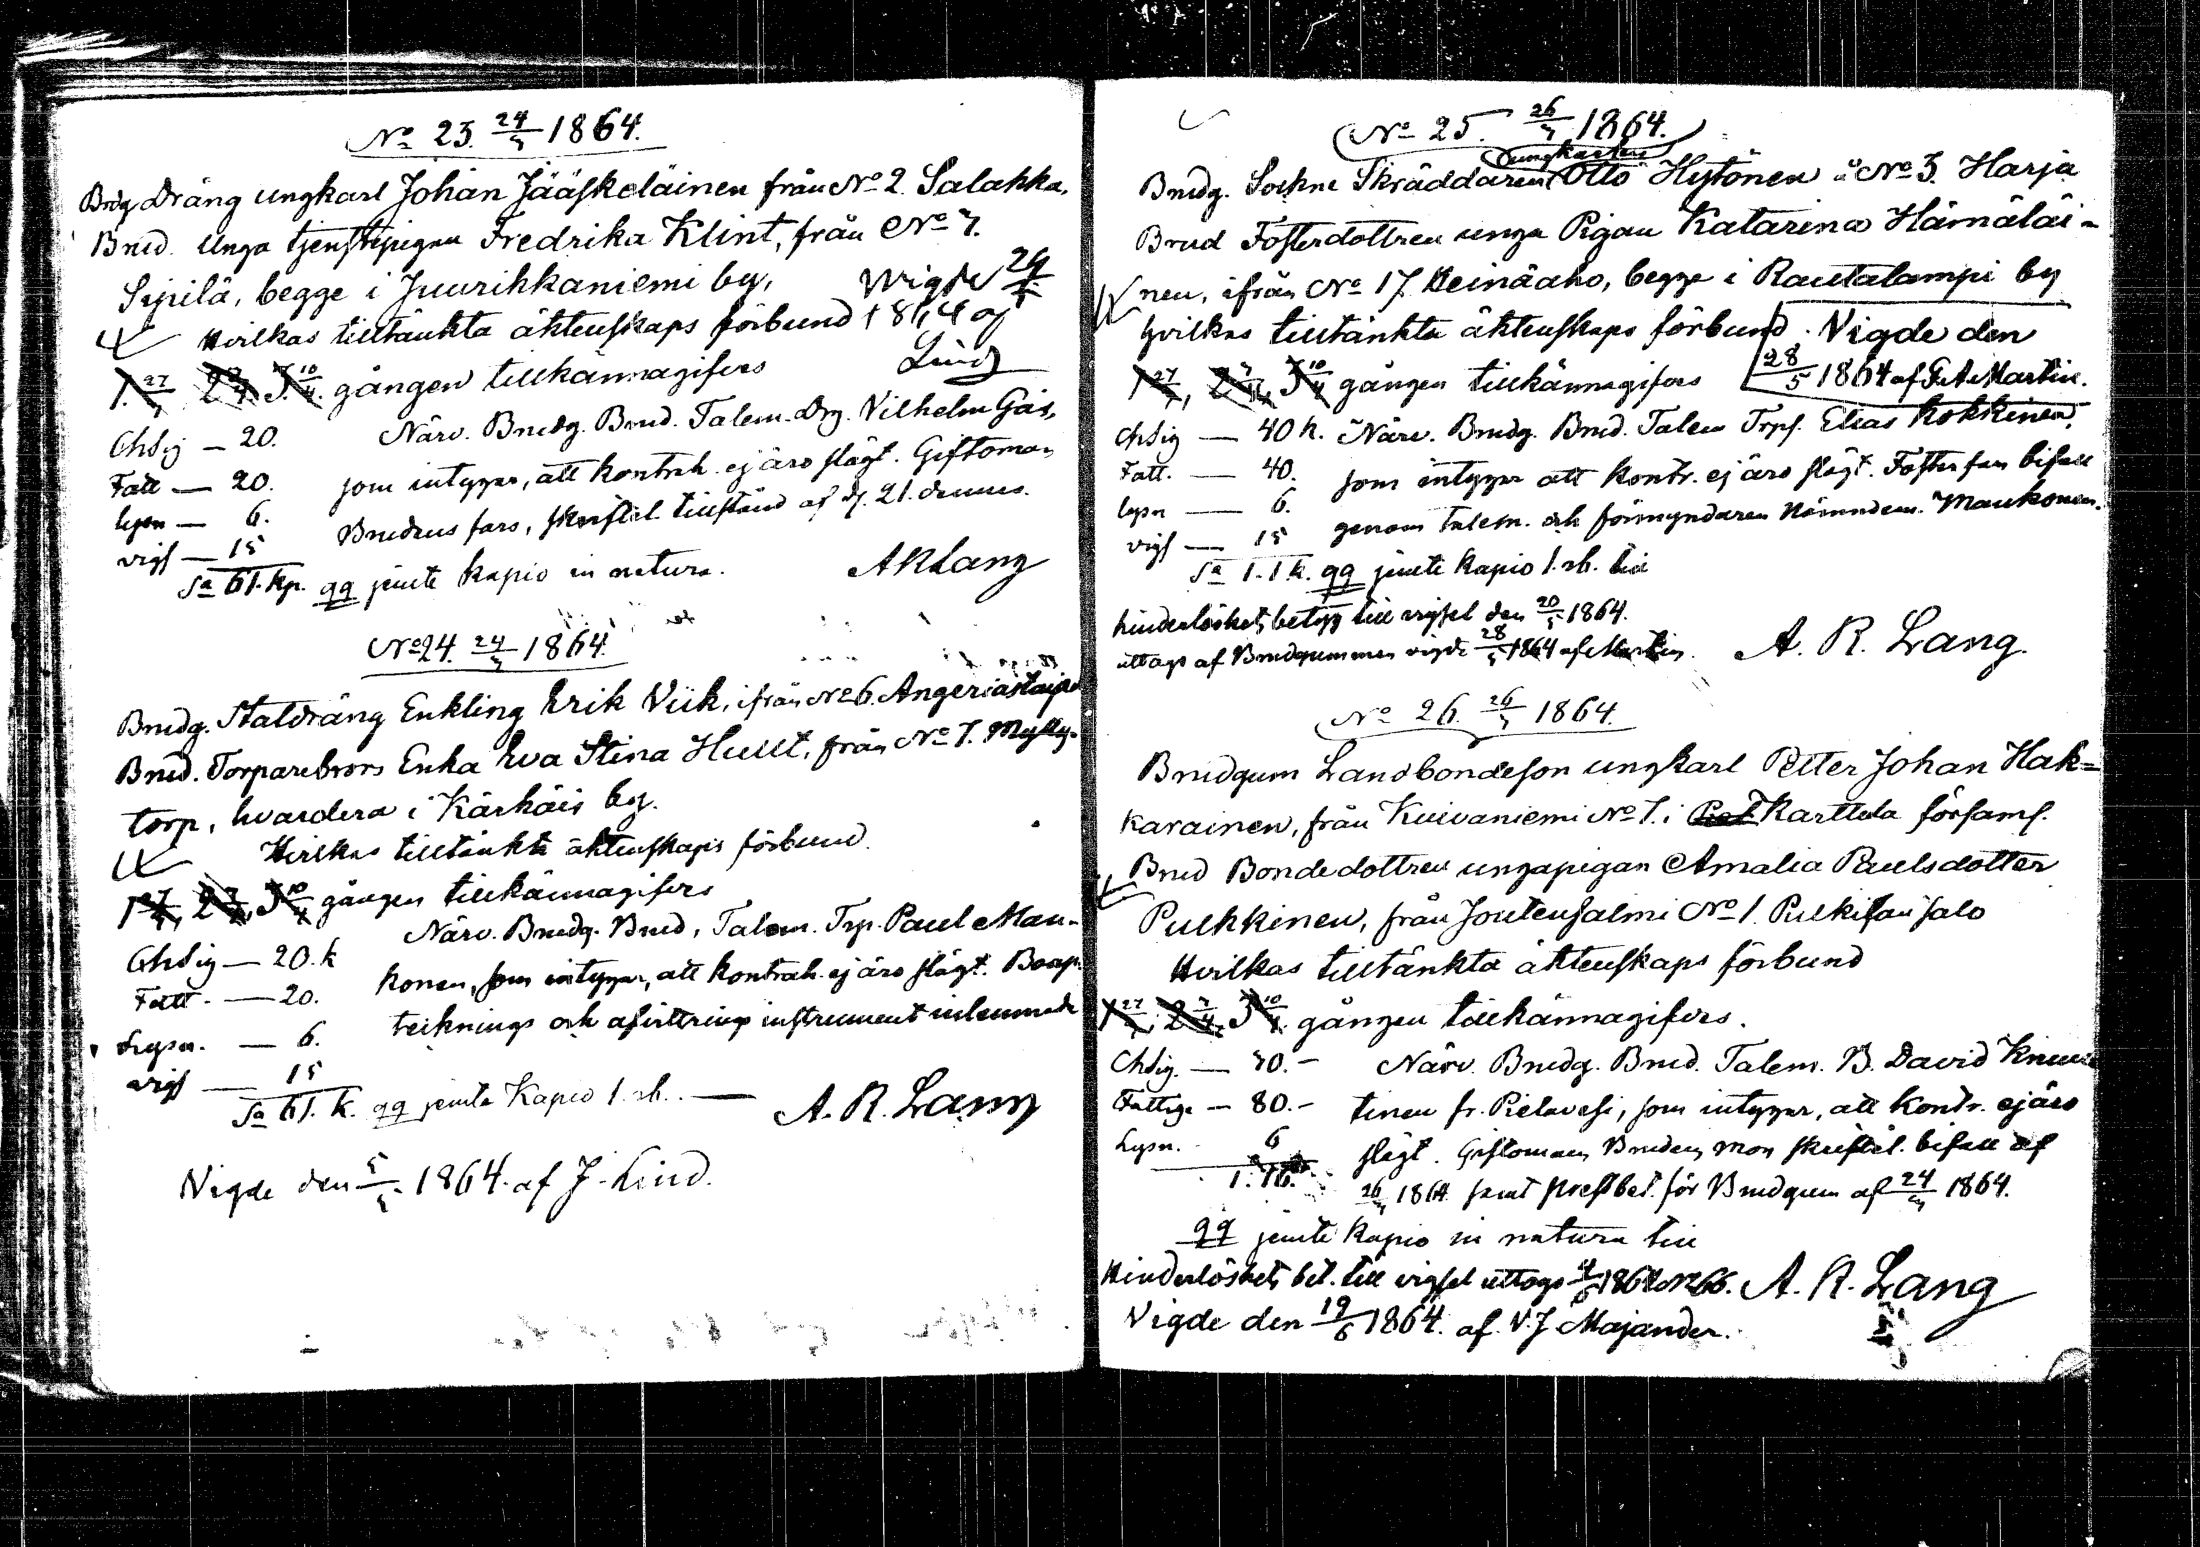 No 23. 24/3 1864.
Brdg Dräng ungkarl Johan Jääskeläinen från No 2 Salakka,
Brud. Unga tjenstepigan Fredrika Klint, från No 7.
Sipilä, begge i Juurikkaniemi by,
Hvilkas tilltänkta äktenskaps förbund
Wigde 29/5 1864 af Lind
1. 27/3 2 3/4 3. 10/4. gången tillkännagifves
Närv. Brudg. Brud. Talem. Drg. Vilhelm Gås,
som intygar, att kontrah. ej äro slägt. Giftoman
Brudens fars, skriftel. tillstånd af d. 21. dennes.
Chsig — 20.
Fatt — 20.
lysn — 6.
vigs — 15
Sa 61. kp. qq jemte kapio in natura.
A R Lang
No 24. 24/3 1864.
Brudg. Staldräng Enkling Erik Viik, ifrån No 6. Angeriastaipal
Brud. Torparebrors Enka Eva Stina Hullt, från No 7. Mylly-
torp, hvardera i Kärkäis by.
Hvilkas tilltänkta äktenskaps förbund.
1 27/3, 2 3/4, 3 10/4 gången tillkännagifves
Närv. Brudg. Brud, Talem. Trp. Paul Man-
konen, som intygar, att kontrah. ej äro slägt. Boup-
tecknings och afvittrings instrument inlemnade
Chsig — 20. k
Fatt. — 20.
Lysn. — 6.
vigs — 15
Sa 61. k. qq jemte Kapio 1. rb. —
A. R. Lang
Vigde den 5/5 1864. af J. Lind.
No 25. 26/3 1864.
ungkarlen
Brudg. Sockne Skräddaren Otto Hytönen å No 3. Harja
Brud Fosterdottren unga Pigan Katarina Hämäläi-
nen, ifrån No 17 Heinäaho, begge i Rautalampi by
hvilkas tilltänkta äktenskaps förbund.
Vigde den 28/5 1864 af F. A. Martin.
1 27/3, 2 3/4, 3 10/4 gången tillkännagifves
Chsig — 40 k. Närv. Brudg. Brud. Talem Trps. Elias Kokkinen,
Fatt. — 40. som intygar att kontr. ej äro slägt. Fosterfars bifall
lysn — 6. genom talem. och förmyndaren Nämndem. Mankonen.
vigs — 15
Sa 1. 1 k. qq jemte kapio 1. rb. till
hinderlöshets betyg till vigsel den 20/5 1864.
uttags af Brudgummen vigde 28/5 1864 af Martin.
A. R. Lang.
No 26. 26/3 1864.
Brudgum Landbondeson ungkarl Petter Johan Hak-
karainen, från Kuivaniemi No 7. i Karttula församl.
Brud Bondedottren ungapigan Amalia Paulsdotter
Pulkkinen, från Joutensalmi No 1. Pulkisansalo
Hvilkas tilltänkta äktenskaps förbund
1 27/3, 2 3/4, 3 10/4. gången tillkännagifves.
Chsig. — 30.– Närv. Brudg. Brud. Talem. B. David
Fattige — 80.– tinen fr. Pielavesi, som intygar, att kontr. ej äro
Lysn. 6 slägt. Giftomans Brudens mor skriftel. bifall af
1. 16. 26/3 1864 samt prestbet. för Brudgum af 24/3 1864.
qq jemte Kapio in natura till
Hinderlöshets bet. till vigsel uttogs 4/6 1864 No 66. A. R. Lang
Vigde den 19/6 1864. af V. J. Majander.